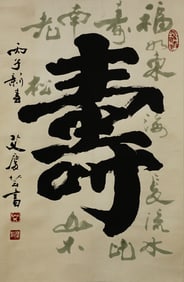 福如東海長流水
壽比南山不老松
壽
丙子新春
書